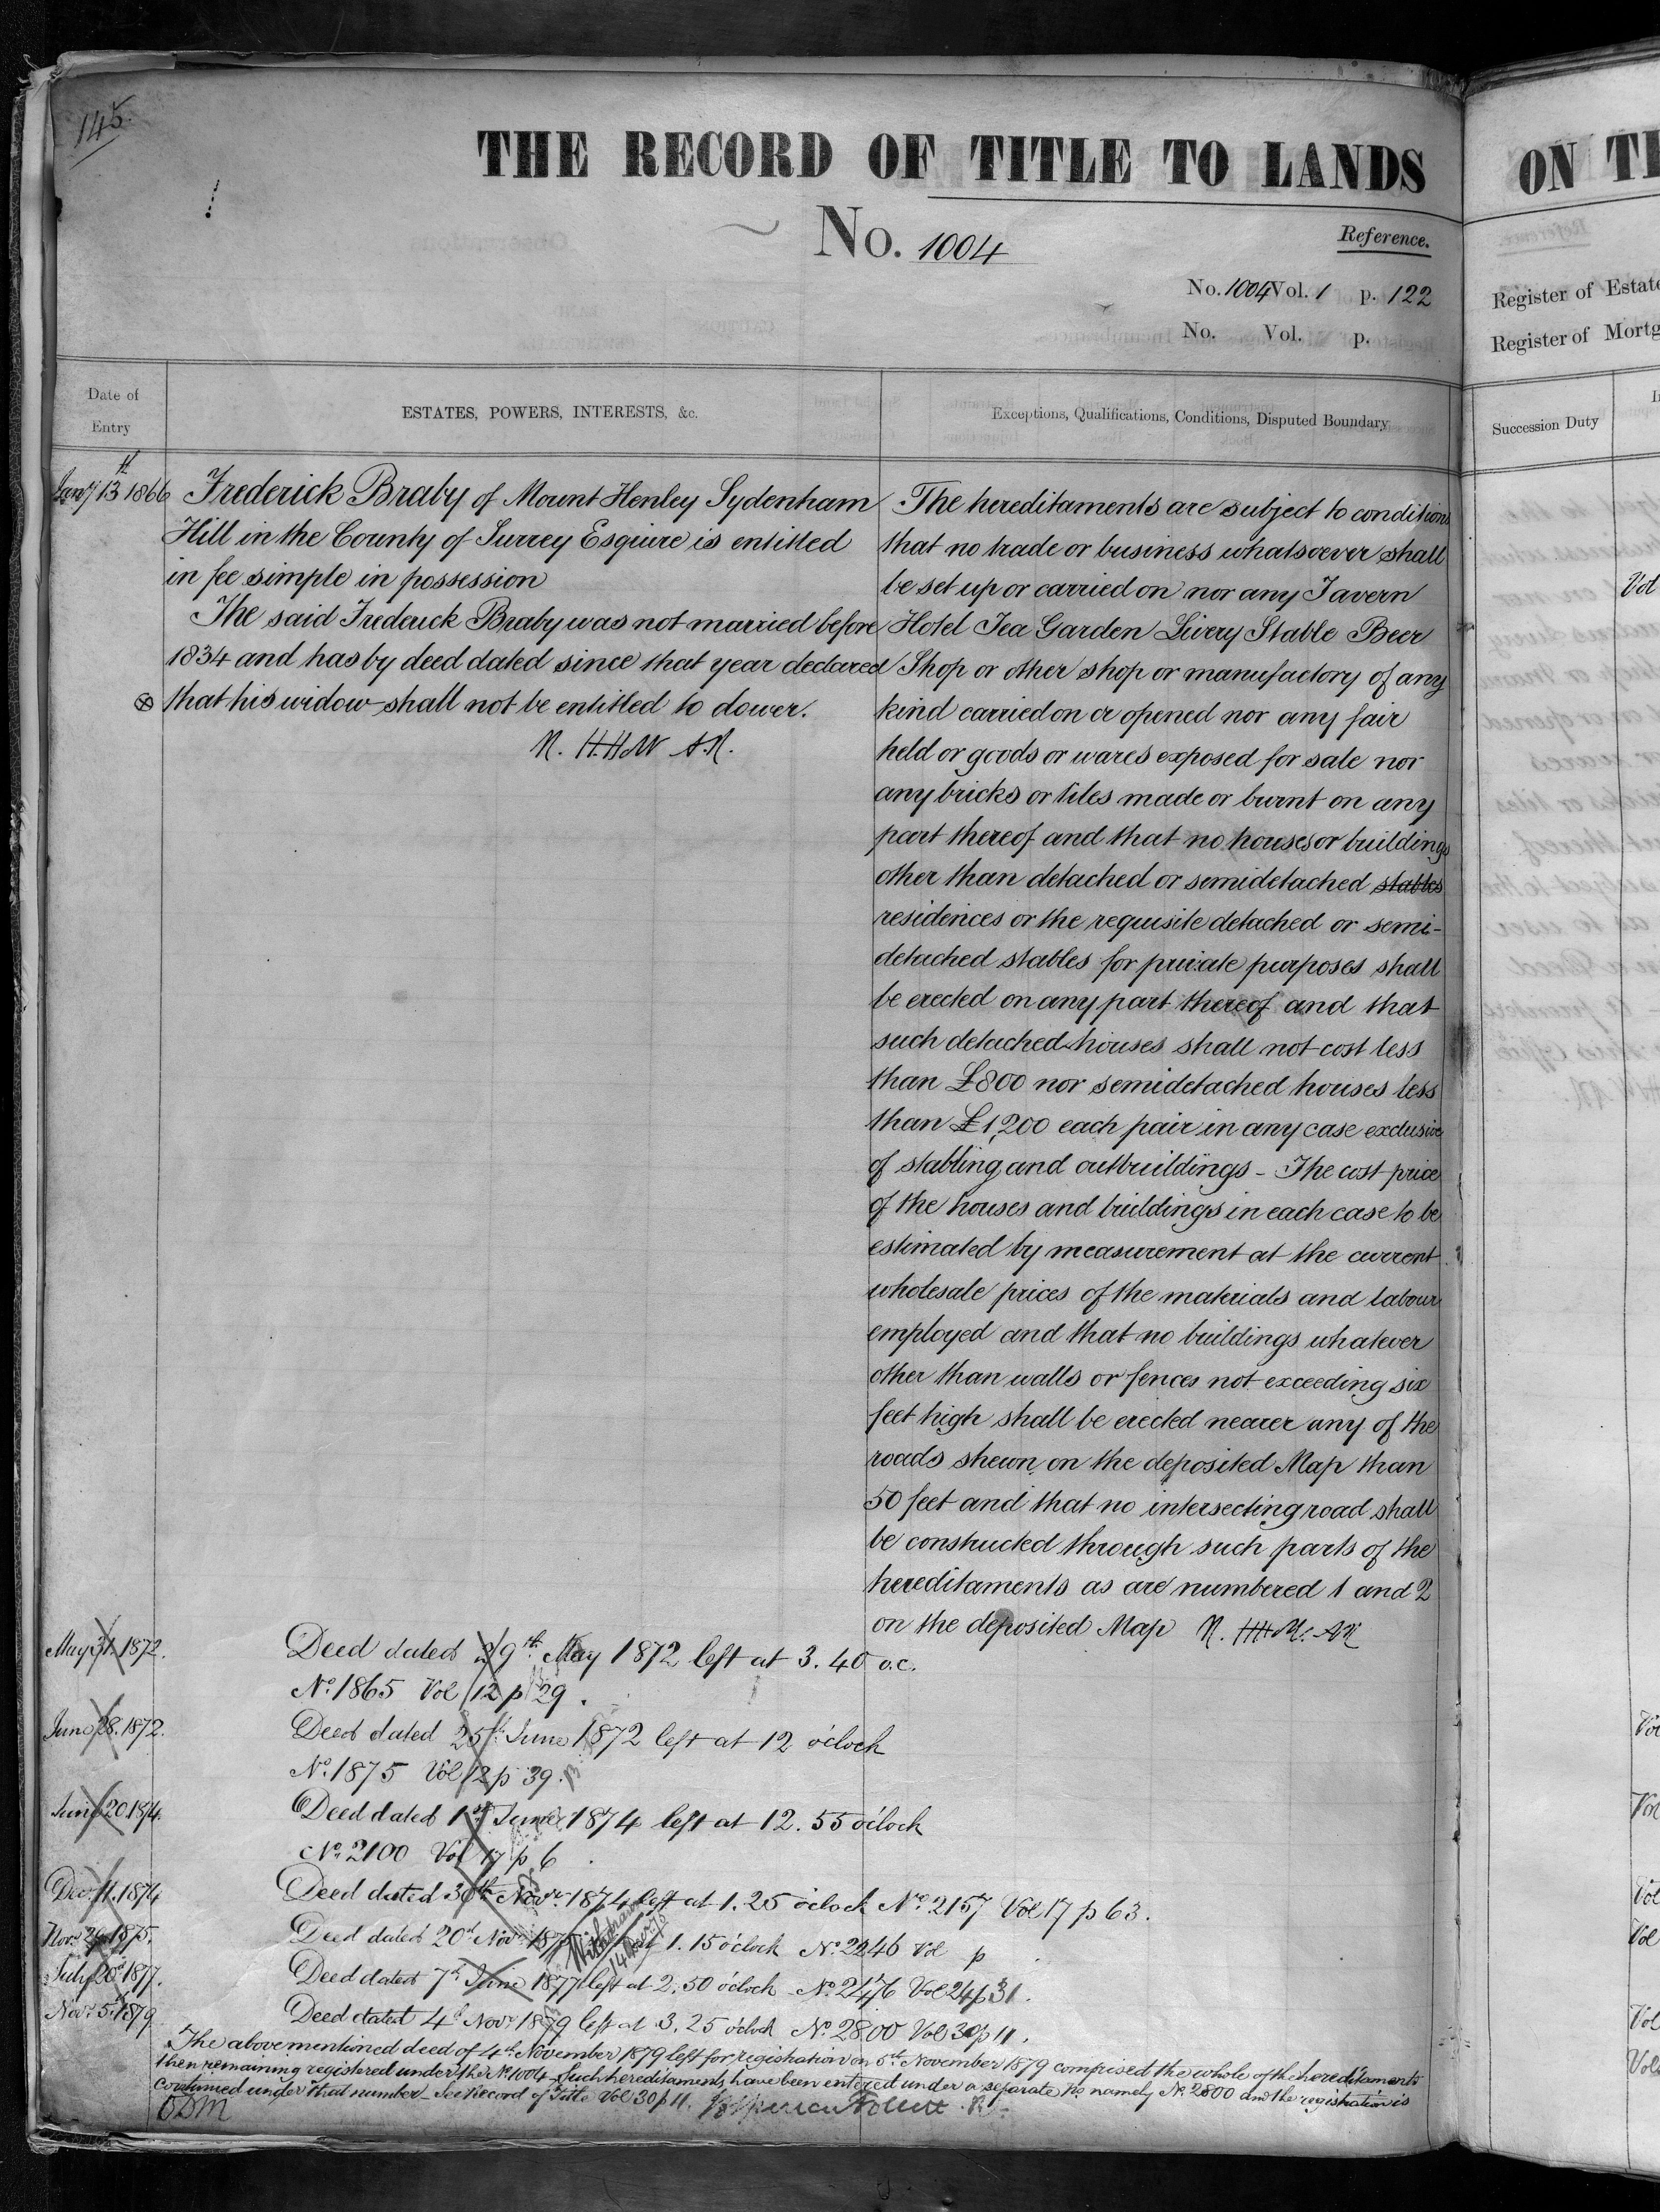 145.
THE RECORD OF TITLE TO LANDS
No. 1004
Reference.
No. 1004 Vol. 1 p. 122
No. Vol. p.
Date of Entry
ESTATES, POWERS, INTERESTS, &c.
Exceptions, Qualifications, Conditions, Disputed Boundary
Jany 13th 1866
Frederick Braby of Mount Henley Sydenham
Hill in the County of Surrey Esquire is entitled
in fee simple in possession
The said Frederick Braby was not married before
1834 and has by deed dated since that year declared
that his widow shall not be entitled to dower.
The hereditaments are subject to conditions
that no trade or business whatsoever shall
be set up or carried on nor any Tavern
Hotel Tea Garden Livery Stable Beer
Shop or other shop or manufactory of any
kind carried on or opened nor any fair
held or goods or wares exposed for sale nor
any bricks or tiles made or burnt on any
part thereof and that no houses or buildings
other than detached or semidetached stables
residences or the requisite detached or semi-
detached stables for private purposes shall
be erected on any part thereof and that
such detached houses shall not cost less
than £800 nor semidetached houses less
than £1,200 each pair in any case exclusive
of stabling and outbuildings - The cost price
of the houses and buildings in each case to be
estimated by measurement at the current
wholesale prices of the materials and labour
employed and that no buildings whatever
other than walls or fences not exceeding six
feet high shall be erected nearer any of the
roads shewn on the deposited Map than
50 feet and that no intersecting road shall
be constructed through such parts of the
hereditaments as are numbered 1 and 2
on the deposited Map
May 31. 1872.
Deed dated 29th May 1872 left at 3.40 o.c.
No. 1865 Vol 12 p 29.
June 28. 1872.
Deed dated 25th June 1872 left at 12 o'clock
No. 1875 Vol 12 p 39.
June 20. 1874.
Deed dated 1st June 1874 left at 12.55 o'clock
No. 2100 Vol 17 p 6
Dec. 11. 1874
Deed dated 30th Novr. 1874 left at 1.25 o'clock No. 2157 Vol 17 p 63.
Novr. 1875.
Deed dated 20th Novr 1875 left at 1.15 o'clock No. 2246 Vol p
Withdrawn
July 20th 1877.
Deed dated 7th June 1877 left at 2.50 o'clock No. 2476 Vol 24 p 31.
Novr. 5th 1879
Deed dated 4th Novr. 1879 left at 3.25 o'clock No. 2800 Vol 30 p 11.
The abovementioned deed of 4th November 1879 left for registration on 5th November 1879 comprised the whole of the hereditaments
then remaining registered under the No. 1004. Such hereditaments have been entered under a separate No. namely No. 2800 and the registration is
continued under that number - See Record of Title Vol 30 p 11.
ON TI
Register of Estate
Register of Mortg
Succession Duty
Vol
Vol
Vol
Vol
Vol
Vol
Vol